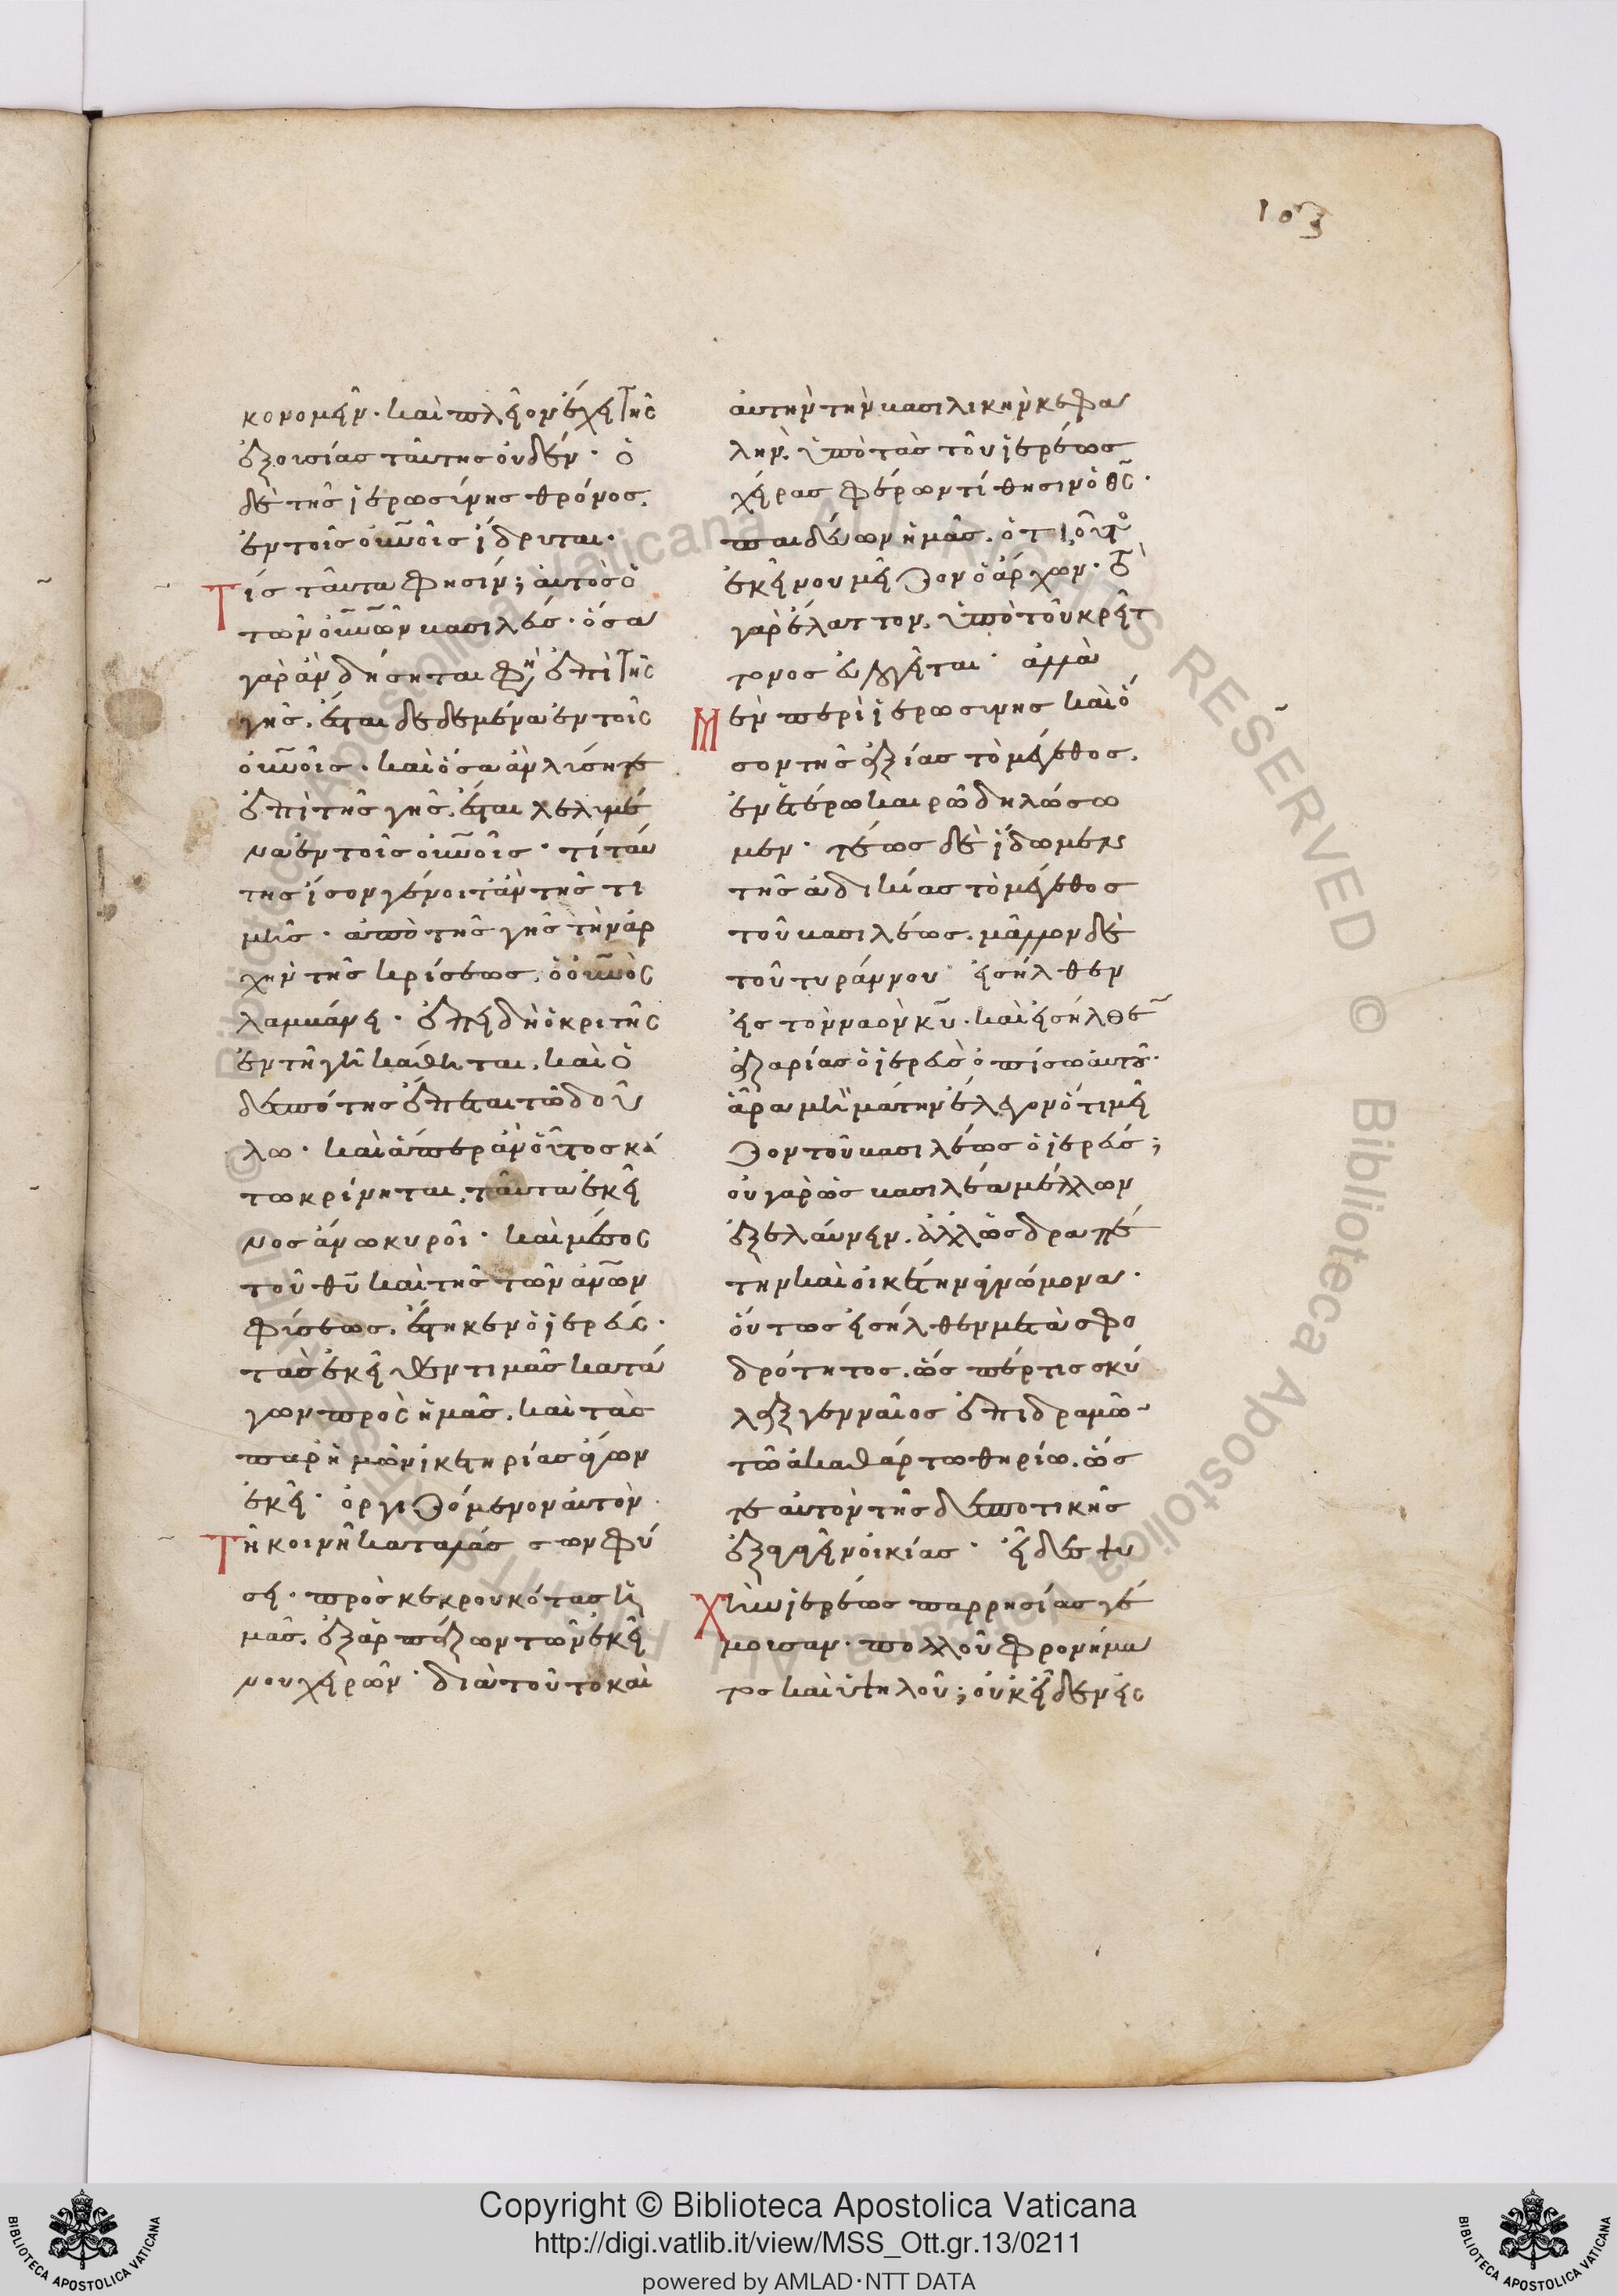 103
κονομεῖν· καὶ πλεῖον ἔχει τῆς
ἐξουσίας ταύτης οὐδέν· ὁ
δὲ τῆς ἱερωσύνης θρόνος,
ἐν τοῖς οὐνοῖς ἵδρυται·
Τίς ταῦτα φησίν; αὐτὸς ὁ
τῶν οὐνῶν βασιλεύς· ὅσα
γὰρ ἂν δήσηται φη ἐπὶ τῆς
γῆς, ἔσται δεδεμένα ἐν τοῖς
οὐνοῖς· καὶ ὅσα ἂν λύσητε
ἐπὶ τῆς γῆς, ἔσται λελυμέ
να ἐν τοῖς οὐνοῖς· τί ταύ
της ἴσον γένοιτ ἂν τῆς τι
μῆς· ἀπὸ τῆς γῆς τὴν ἀρ
χὴν τῆς κρίσεως, ὁ οὐνὸς
λαμβάνει· ἐπειδὴ ὁ κριτὴς
ἐν τῆ γῆ κάθηται, καὶ ὁ
δεσπότης ἕπεται τῶ δού
λω· καὶ ἅπερ ἂν οὗτος κά
τω κρίνηται, ταῦτα ἐκεῖ
νος ἄνω κυροῖ· καὶ μέσος
τοῦ θυ καὶ τῆς τῶν ἀνων
φύσεως, ἕστηκεν ὁ ἱερεύς·
τὰς ἐκεῖθεν τιμὰς κατά
γων πρὸς ἡμᾶς, καὶ τὰς
παρ ἡμῶν ἱκετηρίας ἄγων
ἐκεῖ· ὀργιζόμενον αὐτὸν
Τῆ κοινῆ καταλλάσσων φύ
σει· προσκεκρουκότας ἡ
μᾶς, ἐξαρπάζων τῶν ἐκεί
νου χειρῶν· διὰ τοῦτο καὶ
αὐτὴν τὴν βασιλικὴν κεφα
λὴν, ὑπὸ τὰς τοῦ ἱερέως
χεῖρας φέρων τίθησιν ὁ θς·
παιδεύων ἡμᾶς, ὅτι οὗτος
ἐκείνου μείζον ὁ ἄρχων· τὸ
γὰρ ἔλαττον, ὑπὸ τοῦ κρείτ
τονος εὐλογεῖται· ἀλλὰ
Μὲν περὶ ἱερωσύνης καὶ ὅ
σον τῆς ἀξίας τὸ μέγεθος,
ἐν ἑτέρω καιρῶ δηλώσω
μεν· τέως δὲ ἴδωμεν
τῆς ἀδικίας τὸ μέγεθος
τοῦ βασιλέως, μᾶλλον δὲ
τοῦ τυράννου· εἰσῆλθεν
εἰς τὸν ναὸν κυ· καὶ εἰσῆλθε
ἀζαρίας ὁ ἱερεὺς ὀπίσω αὐτοῦ·
ἆρα μὴ μάτην ἔλεγον ὅτι μεί
ζον τοῦ βασιλέως ὁ ἱερεύς;
οὐ γὰρ ὡς βασιλέα μέλλων
ἐξελαύνειν, ἀλλ ὡς δραπέ
την καὶ οἰκέτην ἀγνώμονα·
οὕτως εἰσῆλθεν μετὰ σφο
δρότητος, ὥσπερ τις σκύ
λαξ γενναῖος ἐπιδραμὼν
τῶ ἀκαθάρτω θηρίω, ὥσ
τε αὐτὸν τῆς δεσποτικῆς
ἐξαγαγεῖν οἰκίας· εἶδες ψυ
Χὴν ἱερέως παρρησίας γέ
μουσαν· πολλοῦ φρονήμα
τος καὶ ὑψηλοῦ; οὐκ εἶδεν εἰς
Copyright © Biblioteca Apostolica Vaticana
http://digi.vatlib.it/view/MSS_Ott.gr.13/0211
powered by AMLAD·NTT DATA